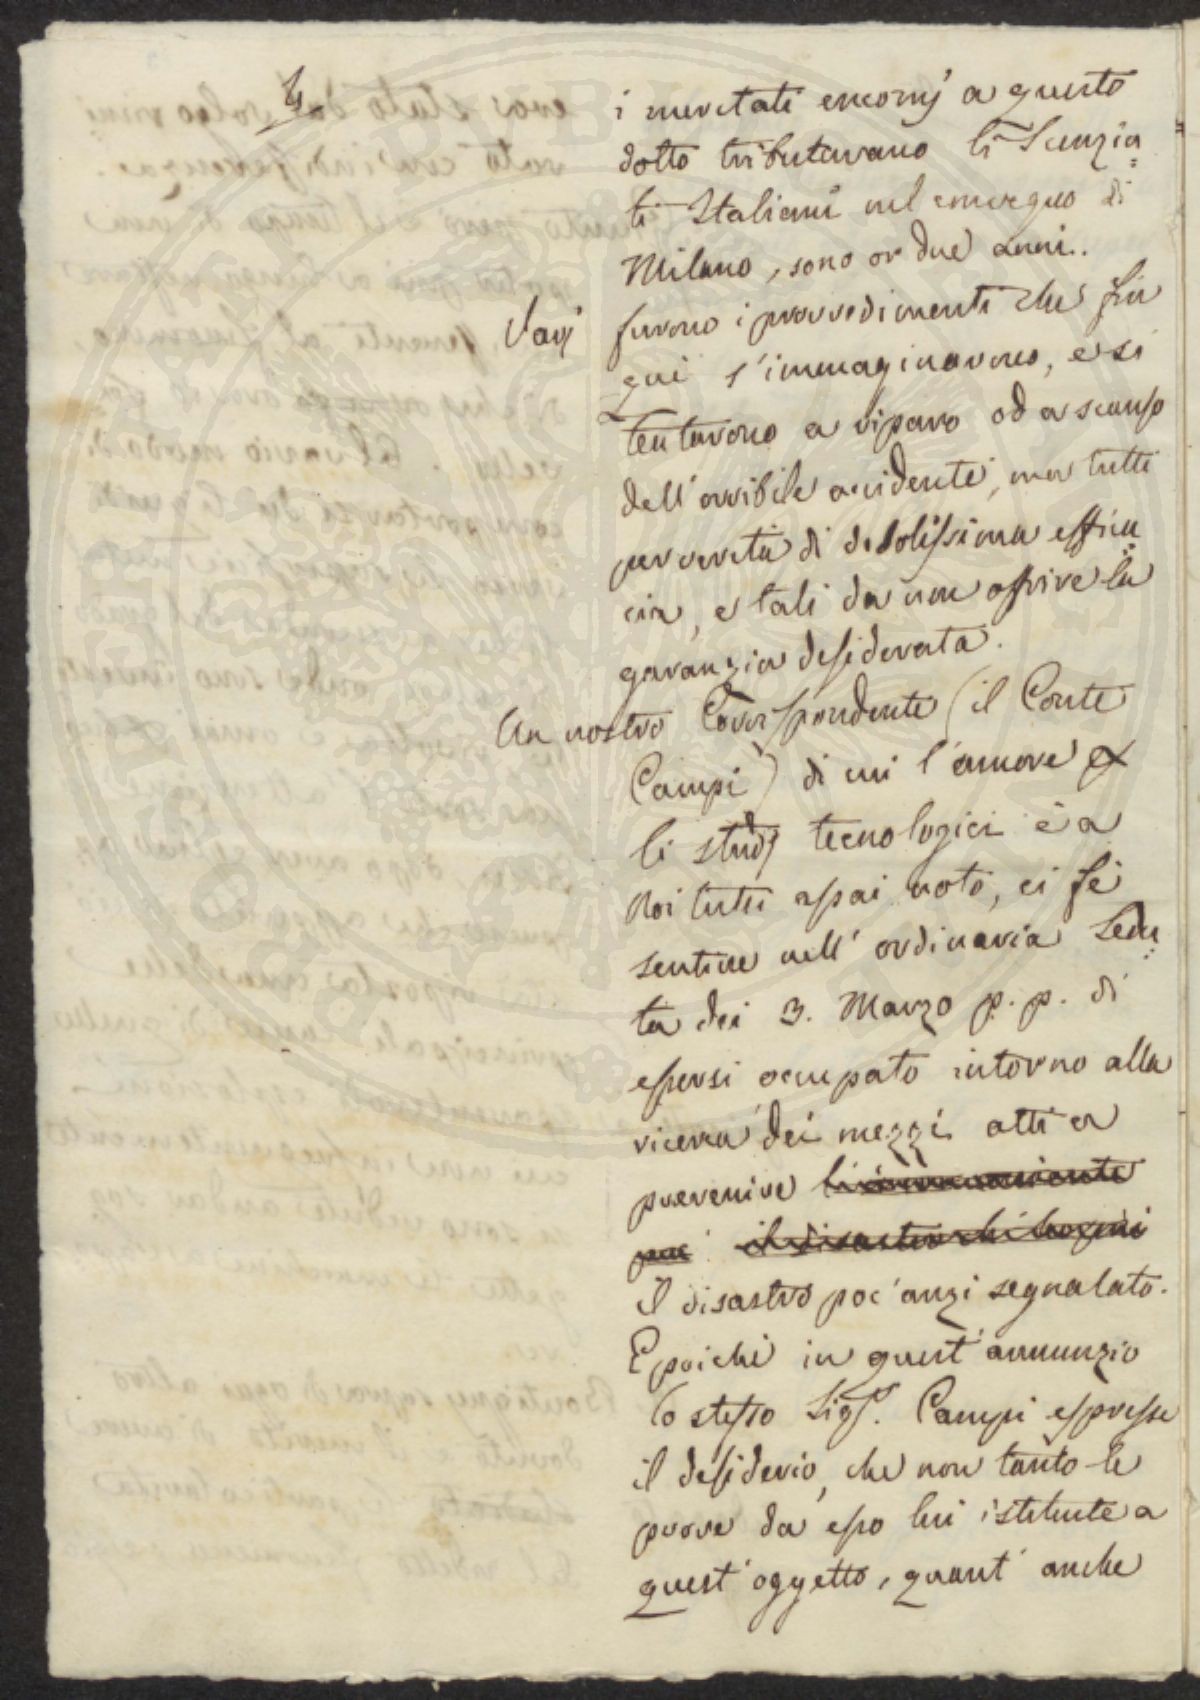 4.
i meritati encomj a questo
dotto tributavano li Scenzia=
ti Italiani nel convegno di
Milano, sono or due anni..
Varj furono i provvedimenti che fin
quì s'immaginarono, e si
tentarono a riparo od a scanso
dell'orribile accidente, ma tutti
per verità di debolissima effica=
cia, e tali da non offrire la
garanzia desiderata.
Un nostro Corrispondente (il Conte
Campi) di cui l'amore
li studj tecnologici è a
noi tutti assai noto, ci fè
sentire nell'ordinaria Sedu=
ta dei 3. Marzo p. p. di
essersi occupato intorno alla
ricerca dei mezzi atti a
prevenire
il disastro
il disastro poc'anzi segnalato.
E poichè in quest'annunzio
lo stesso Sigr. Campi espresse
il desiderio, che non tanto le
prove da esso lui istituite a
quest'oggetto, quant'anche